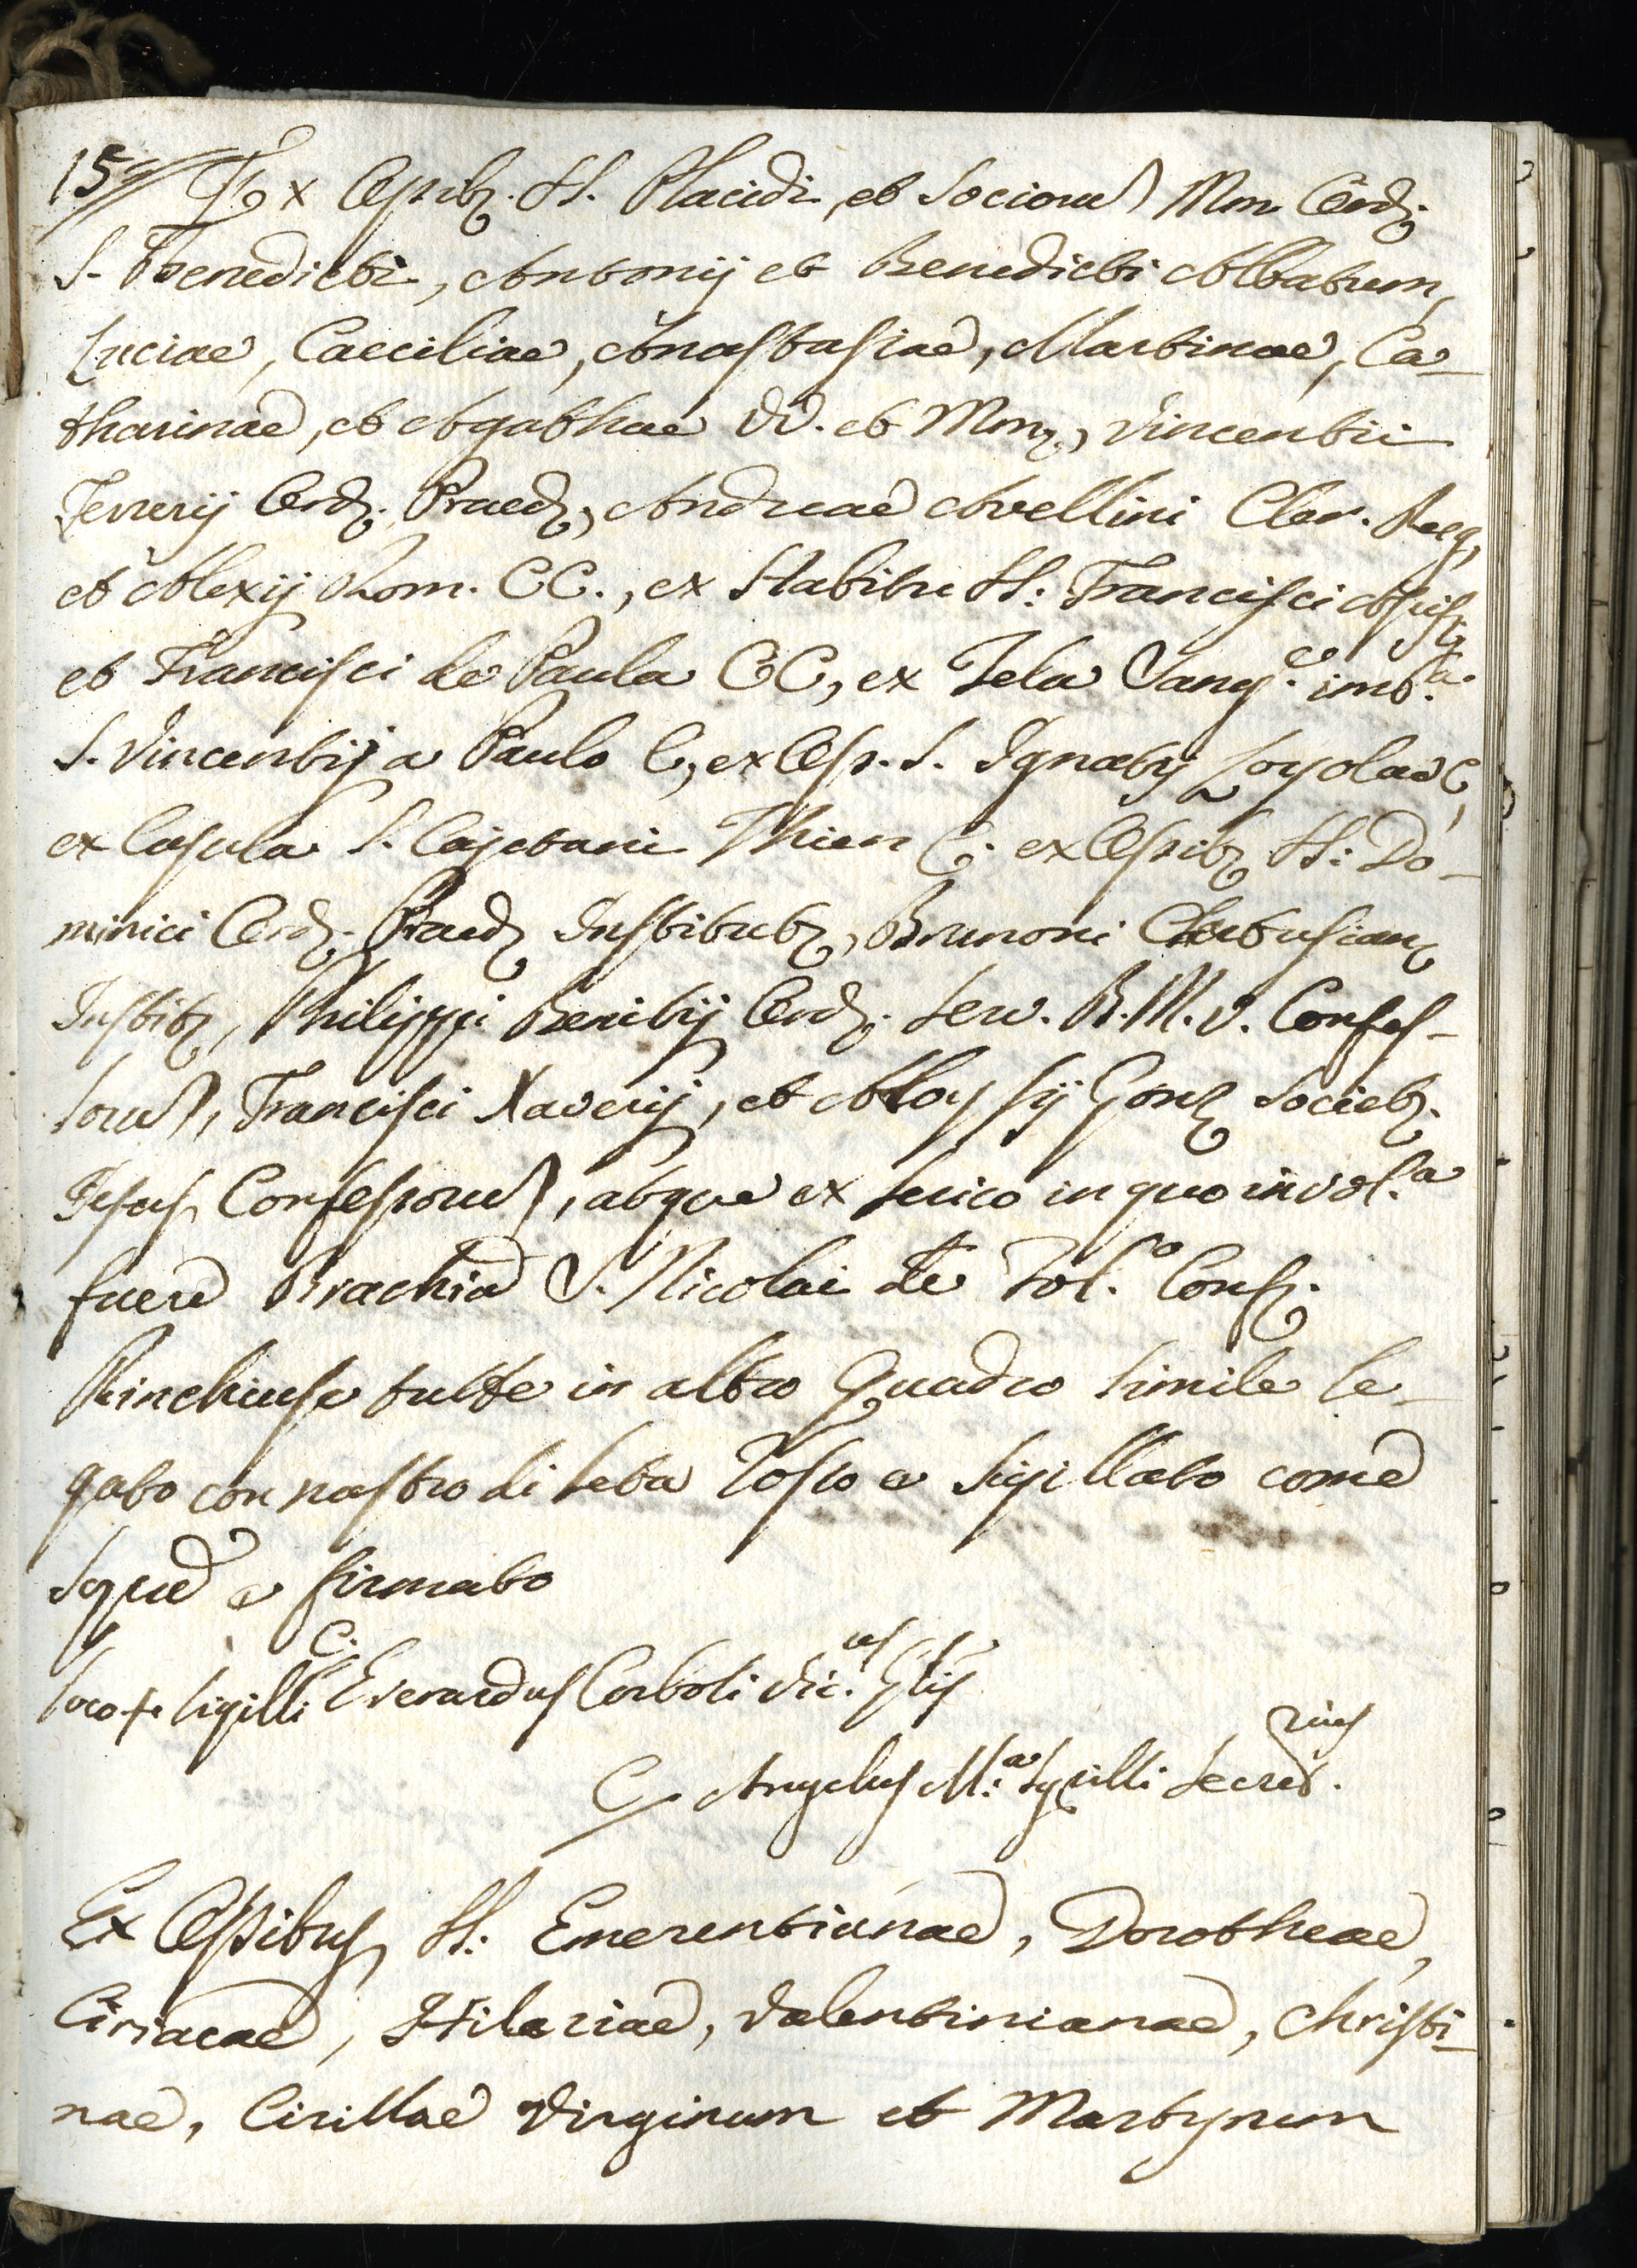 15 Ex Ossib. SS. Placidi, et Sociorum Mm. Ord.
S. Benedicti, Antonij et Benedicti Abbatum,
Luciae, Caeciliae, Anastasiae, Martinae, Ca-
tharinae, et Agathae VV. et Mm., Vincentii
Ferrerij Ord. Praed., Andreae Avellini Cler. Reg,
et Alexij Rom. CC., ex Habitu SS: Francisci Assis.
et Francisci de Paula CC, ex Tela Sang.e imb.a
S. Vincentij a Paulo C, ex Oss. S. Ignatij Loyolae C,
ex Casula S. Cajetani Thien C. ex Ossib. SS: Do-
minici Ord. Praed. Institut., Brunoni Chartusian.
Instit., Philippi Benitij Ord. Serv. B. M. V. Confes-
sorum, Francisci Xaverij, et Aloysij Gonz. Societ.
Jesus, Confessorum, atque ex serico in quo invol.a
fuere Brachia S. Nicolai de Tol.o Conf.
Rinchiuse tutte in altro Quadro simile le-
gato con nastro di seta Rosso e sigillato come
Sopra e firmato
Loco + Sigilli C. Everardus Corboli Vic.us Glis
C. Angelus M.a Secret.rius
Ex Ossibus, SS: Emerentianae, Dorotheae,
Ciriacae, Hilariae, Valentinianae, Christi-
nae, Cirillae Virginum et Martyrum